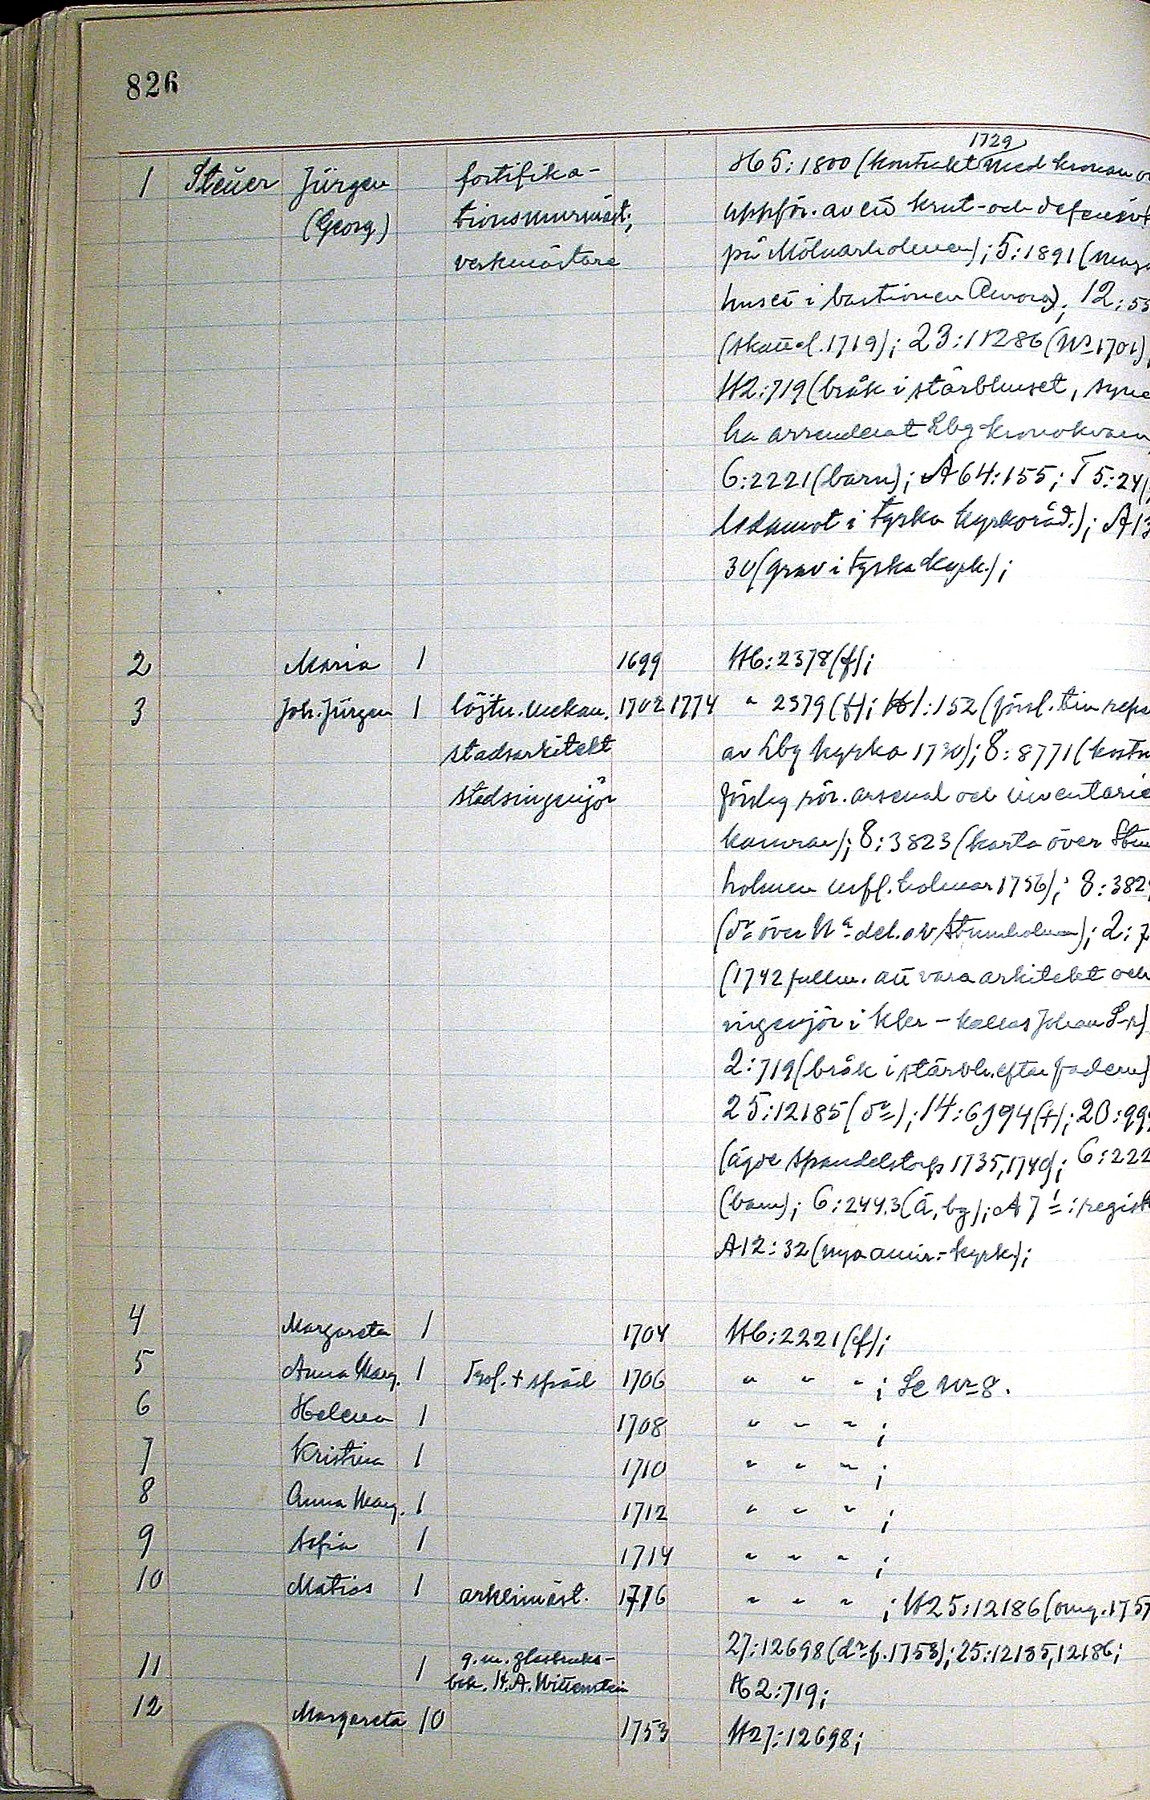 826
1729
1 Steüer Jürgen fortifika- H5:1800 (kontrakt med kronan
(Georg.) tionsmurmäst; uppför. av ett krut- och
verkmästare på Mölnarholmen); 5:1891
huset i bastionen Aurora); 12:
(skattel. 1719); 23:11286 (Nr 1701)
H2:719 (bråk i stärbhuset, syne
ha arrenderat Lbg kronokvarn
6:2221 (barn); A64:155; T5:24
ledamot i tyska kyrkoråd.); A13
30 (grav i tyska kyrk.);
2 Maria 1 1699 H6:2378 (f);
3 Joh. Jürgen 1 löjtn. mekan. 1702 1774 " 2379 (f); H1:152 (försl. till repa
stadsarkitekt av Lbg kyrka 1730); 8:8771 (kostn
stadsingenjör förslag rör. arsenal och inventarie
kamrar); 8:3823 (karta över Stum
holmen m fl. holmar 1756); 8:382
(do över Na del. av Stumholmen); 2:7
(1742 fullm. att vara arkitekt och
ingenjör i Kbr - kallas Johan
2:719 (bråk i stärbh. efter fadern)
25:12185 (do); 14:6994 (+); 20:999
(ägde Spandelstorp 1735, 1740); 6:222
(barn); 6:2443 (ä, bg); A 7 : regist
A12:32 (nya amir.-kyrk.);
4 Margareta 1 1704 H6:2221 (f);
5 Anna Marg. 1 Trol. + späd 1706 " " " ; Se Nr 8.
6 Helena 1 1708 " " " ;
7 Kristina 1 1710 " " " ;
8 Anna Marg. 1 1712 " " " ;
9 Sofia 1 1714 " " " ;
10 Matias 1 arklimäst. 1716 " " " ; H25:12186 (omg. 1757
27:12698 (dr f. 1753); 25:12185, 12186;
11 1 g. m. glasbruks- H2:719;
bok. H. A. Wittenstein
12 Margareta 10 1753 H27:12698;